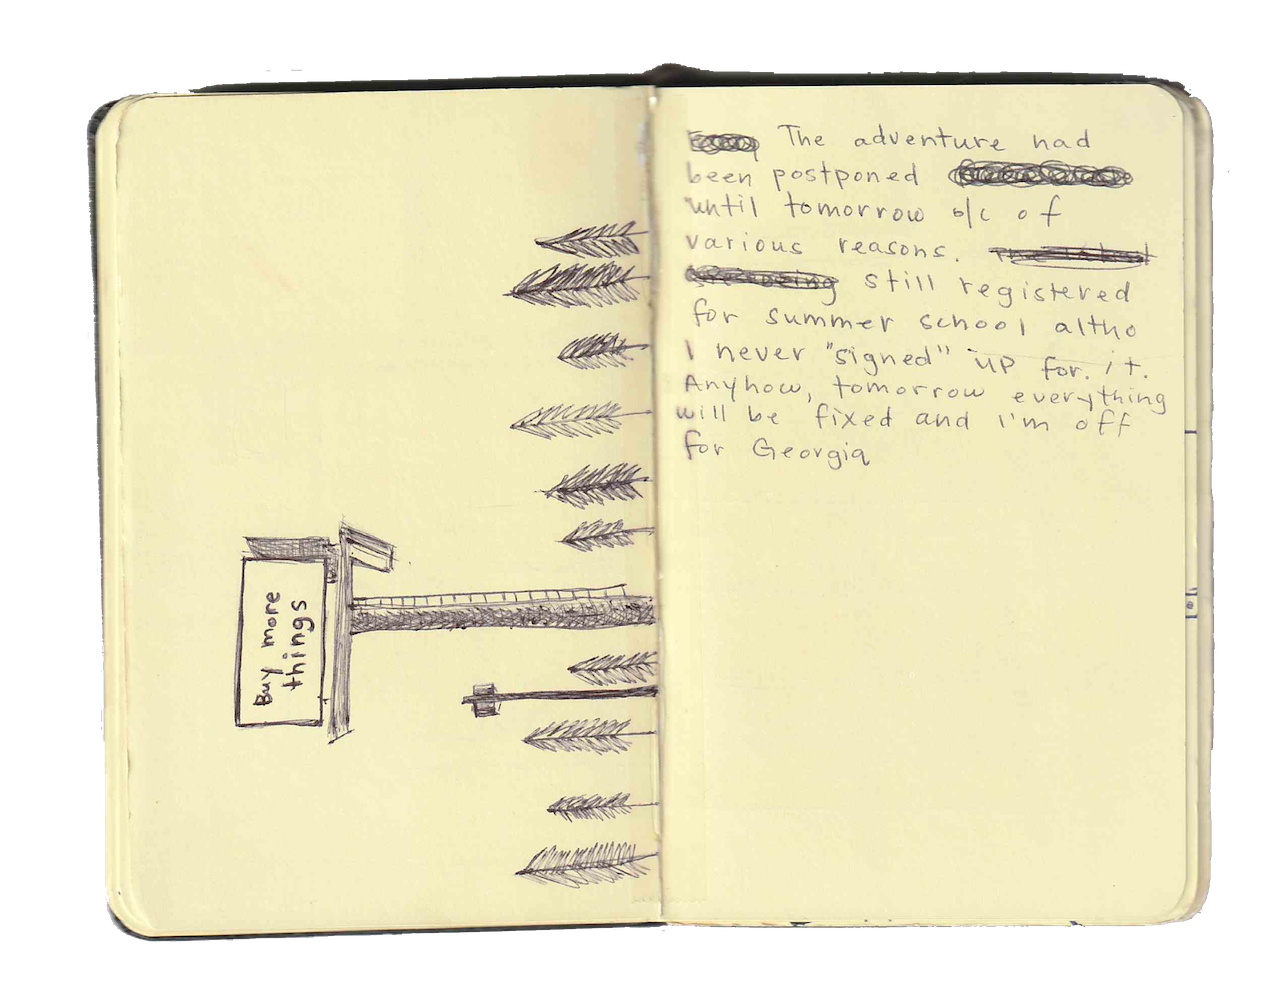 Buy more
things
The adventure had
been postponed
until tomorrow b/c of
various reasons.
still registered
for summer school altho
I never "signed" up for. it.
Anyhow, tomorrow everything
will be fixed and I'm off
for Georgia